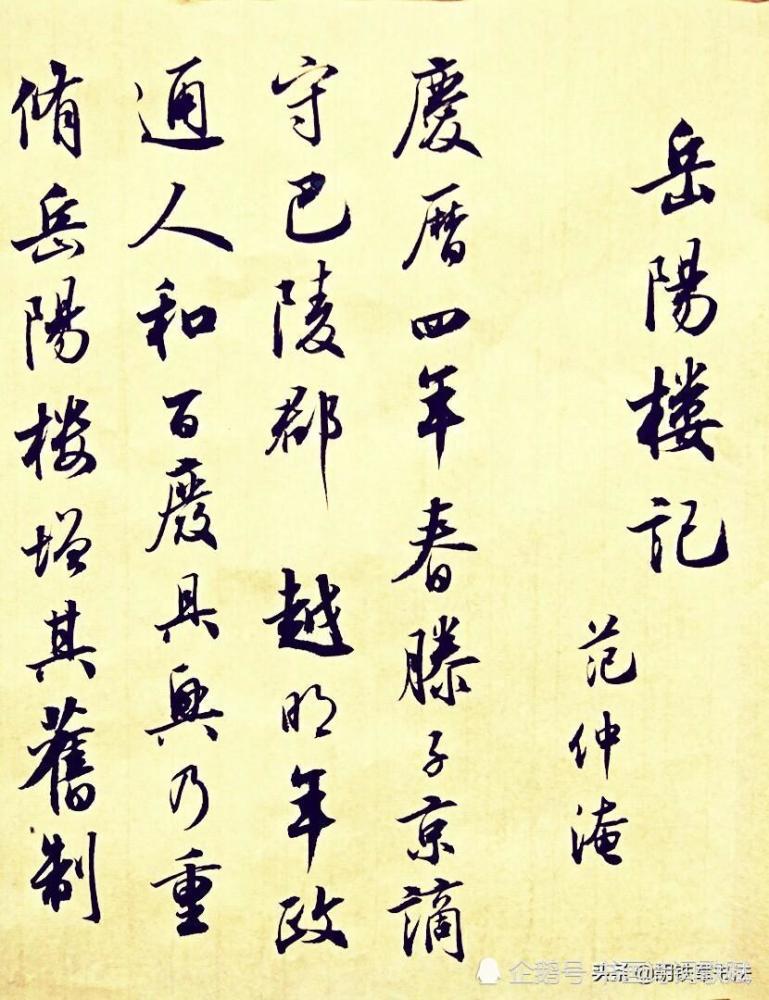 岳陽楼記
范仲淹
慶曆四年春滕子京謫
守巴陵郡 越明年政
通人和百廢具興乃重
脩岳陽楼增其舊制
企鹅号
头条@朝铁军书法